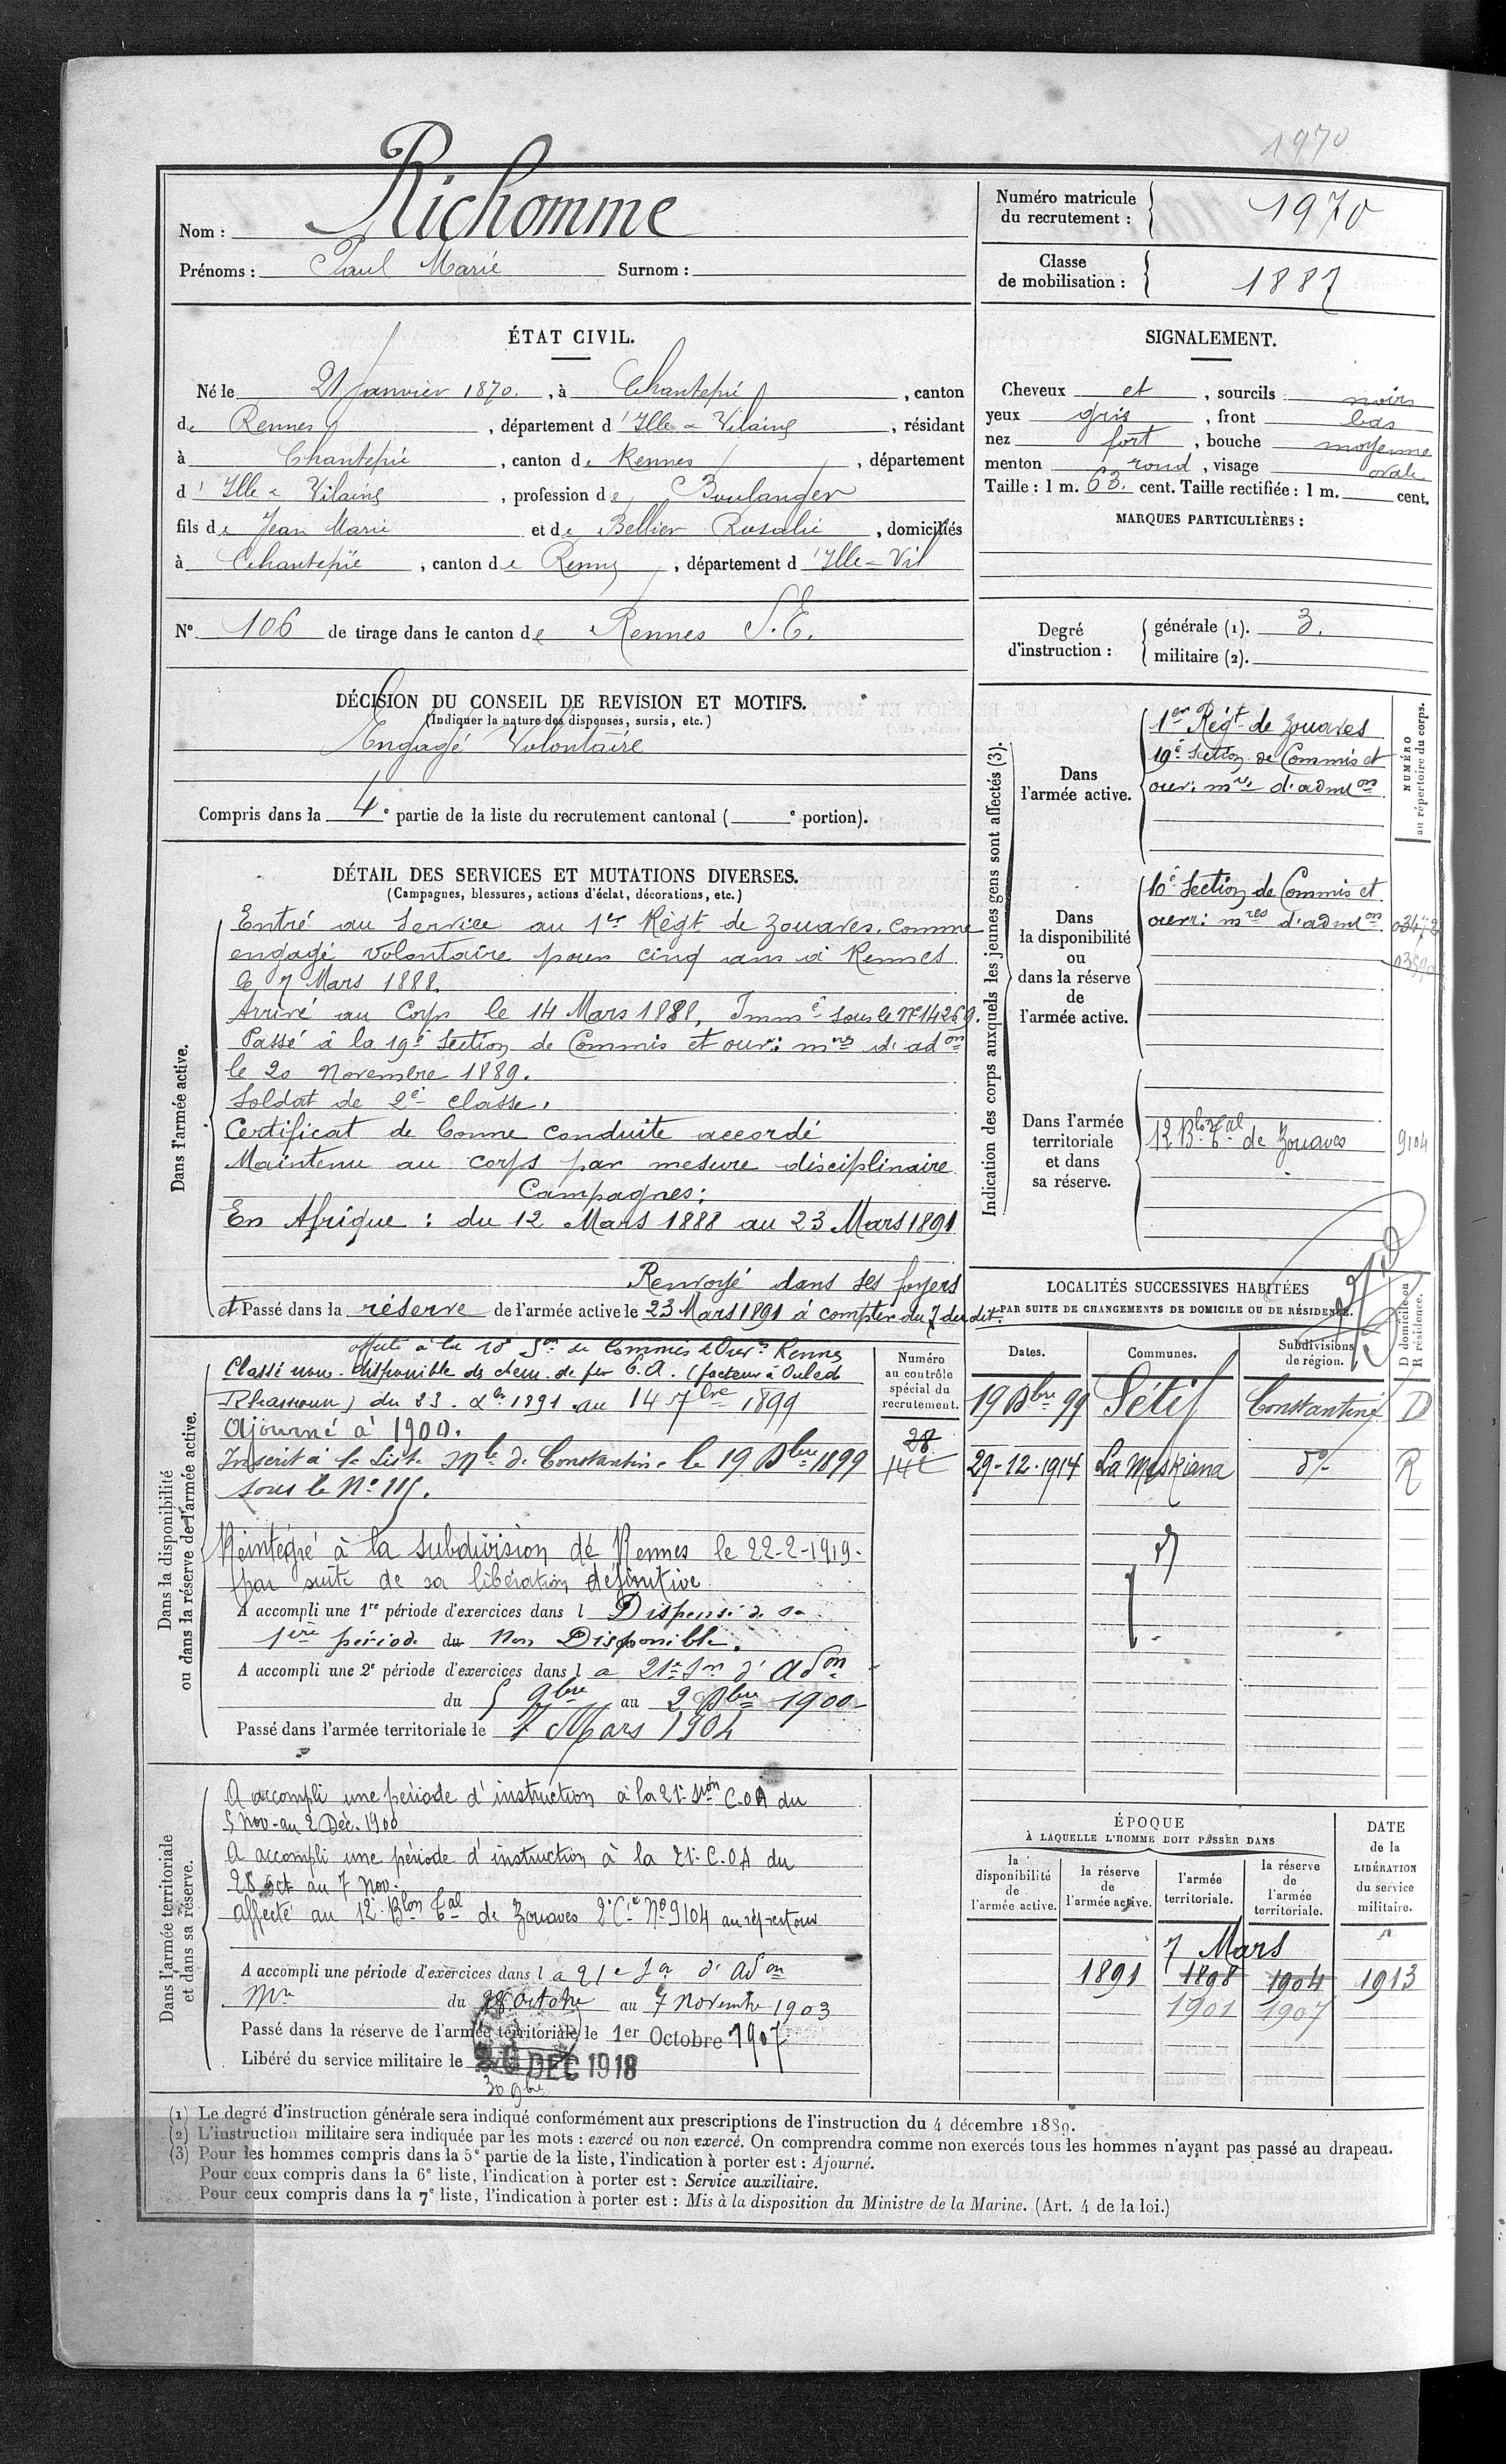 1970
Nom : Richomme
Prénoms : Paul Marie Surnom :
Numéro matricule du recrutement : 1970
Classe de mobilisation : 1887
ÉTAT CIVIL.
Né le 21 Janvier 1870. , à Chantepie , canton
de Rennes , département d'Ille & Vilaine , résidant
à Chantepie , canton de Rennes , département
d'Ille & Vilaine , profession de Boulanger
fils de Jean Marie et de Bellier Rosalie , domiciliés
à Chantepie , canton de Rennes , département d'Ille & Vil
N° 106 de tirage dans le canton de Rennes S.E.
SIGNALEMENT.
Cheveux et , sourcils noirs
yeux gris , front bas
nez fort , bouche moyenne
menton rond , visage ovale
Taille : 1 m. 63. cent. Taille rectifiée : 1 m. cent.
MARQUES PARTICULIÈRES :
Degré d'instruction : générale (1). 3.
militaire (2).
DÉCISION DU CONSEIL DE REVISION ET MOTIFS.
(Indiquer la nature des dispenses, sursis, etc.)
Engagé Volontaire
Compris dans la 4e partie de la liste du recrutement cantonal ( e portion).
DÉTAIL DES SERVICES ET MUTATIONS DIVERSES.
(Campagnes, blessures, actions d'éclat, décorations, etc.)
Dans l'armée active.
Entré au Service au 1er Régt de Zouaves. comme
engagé volontaire pour cinq ans à Rennes
le 7 Mars 1888.
Arrivé au Corps le 14 Mars 1888, Imme sous le No 14269.
Passé à la 19e Section de Commis et ouv: mres d'adon
le 20 Novembre 1889.
Soldat de 2e classe.
Certificat de bonne conduite accordé
Maintenu au corps par mesure disciplinaire
Campagnes:
En Afrique : du 12 Mars 1888 au 23 Mars 1891
Renvoyé dans ses foyers
et Passé dans la réserve de l'armée active le 23 Mars 1891 à compter du 7 du dit.
Indication des corps auxquels les jeunes gens sont affectés (3).
NUMÉRO au répertoire du corps.
Dans l'armée active.
1er Régt de Zouaves
19e Section de Commis et
ouv: mres d'admon
Dans la disponibilité ou dans la réserve de l'armée active.
10e Section de Commis et
ouvr: mres d'admon
Dans l'armée territoriale et dans sa réserve.
12 Blon Tal de Zouaves 9104
LOCALITÉS SUCCESSIVES HABITÉES
PAR SUITE DE CHANGEMENTS DE DOMICILE OU DE RÉSIDENCE.
Dates. Communes. Subdivisions de région. D domicile ou R résidence.
19 Xbre 99 Sétif Constantine D
29-12-1914 La Meskiana do R
Dans la disponibilité ou dans la réserve de l'armée active.
Numéro au contrôle spécial du recrutement.
28
affecté à la 10e Son de Commis & Ouvrs Rennes
Classé non-disponible des chem. de fer E.A. (facteur à Ouled
Rhamoun) du 23. Xbr 1891 au 14 7bre 1899
Ajourné à 1900.
Inscrit à la Liste Mle de Constantine le 19 Xbre 1899
sous le No 115.
Réintégré à la subdivision de Rennes le 22-2-1919.
par suite de sa libération définitive
A accompli une 1re période d'exercices dans l Dispensé de sa
1ère période du Non Disponible.
A accompli une 2e période d'exercices dans la 21e Son d'adon
du 5 9bre au 2 Xbre 1900
Passé dans l'armée territoriale le 7 Mars 1904
Dans l'armée territoriale et dans sa réserve.
A accompli une période d'instruction à la 21e Son C.O.A du
5 Nov-au 2 Déc. 1900
A accompli une période d'instruction à la 21e C.O.A du
28 Oct au 7 Nov.
Affecté au 12e Blon Tal de Zouaves 2e Cie No 9104 au répertoire
A accompli une période d'exercices dans la 21e Son d'adon
Mre du 28 Octobre au 7 Novembre 1903
Passé dans la réserve de l'armée territoriale le 1er Octobre 1907
Libéré du service militaire le DEC 1918
30 9bre
ÉPOQUE
À LAQUELLE L'HOMME DOIT PASSER DANS
la disponibilité de l'armée active. la réserve de l'armée active. l'armée territoriale. la réserve de l'armée territoriale.
DATE de la LIBÉRATION du service militaire.
7 Mars
1891 1898 1904 1913
1901 1907
(1) Le degré d'instruction générale sera indiqué conformément aux prescriptions de l'instruction du 4 décembre 1889.
(2) L'instruction militaire sera indiquée par les mots : exercé ou non exercé. On comprendra comme non exercés tous les hommes n'ayant pas passé au drapeau.
(3) Pour les hommes compris dans la 5e partie de la liste, l'indication à porter est : Ajourné.
Pour ceux compris dans la 6e liste, l'indication à porter est : Service auxiliaire.
Pour ceux compris dans la 7e liste, l'indication à porter est : Mis à la disposition du Ministre de la Marine. (Art. 4 de la loi.)